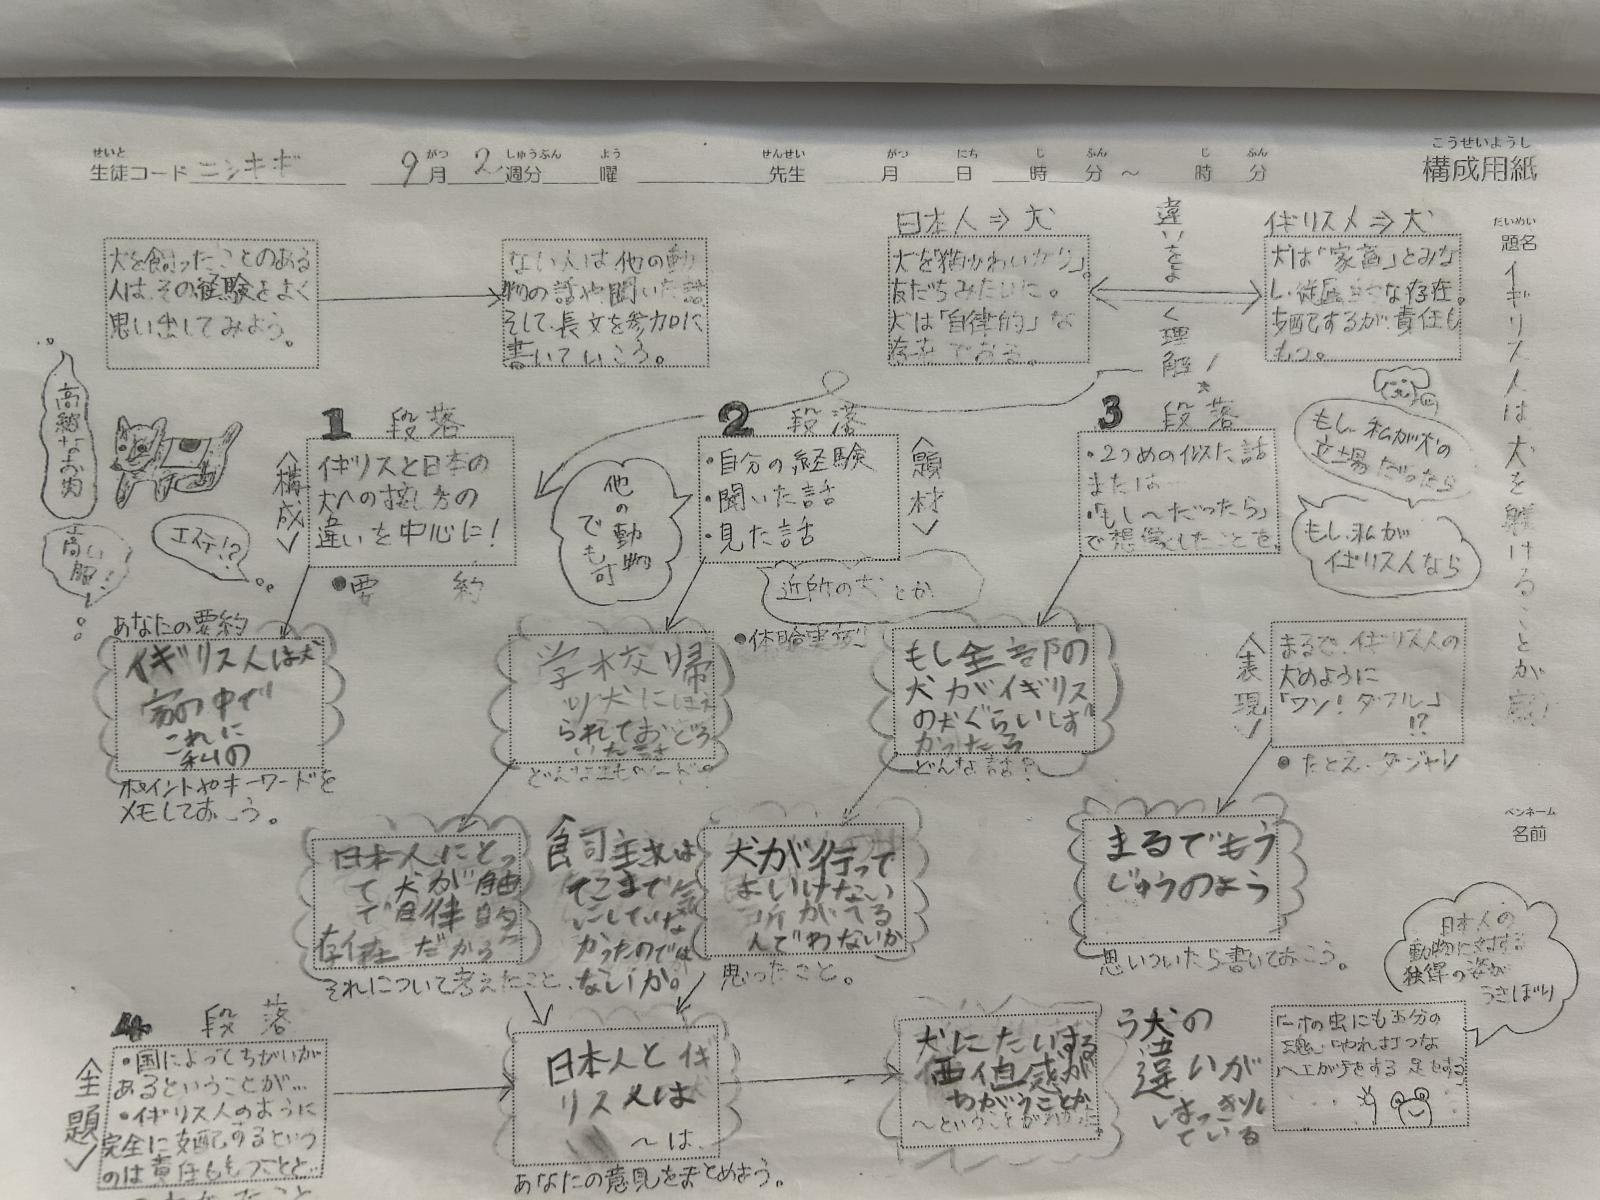 せいと がつ しゅうぶん よう せんせい がつ にち じ ふん じ ふん
生徒コード ニシキギ 9月 2週分 曜 先生 月 日 時 分 ～ 時 分
こうせいようし
構成用紙
だいめい
題名
イギリス人は犬を躾けることが
ペンネーム
名前
犬を飼ったことのある
人は、その経験をよく
思い出してみよう。
ない人は他の動
物の話や聞いた話、
そして、長文を参加に
書いていこう。
日本人⇒犬
犬を「猫かわいがり」。
友だちみたいに。
犬は「自律的」な
存在である。
違いをよく理解!
イギリス人⇒犬
犬は「家畜」とみな
し、従属的な存在。
支配するが、責任も
もつ。
高級なお肉
高い服!
エイケ!?
1 段落
〈構成〉
イギリスと日本の
犬への接し方の
違いを中心に!
●要 約
他の動物でも可
2 段落
〈題材〉
・自分の経験
・聞いた話
・見た話
近所の犬とか
●体験実例
3 段落
・2つめの似た話
または…
・「もし〜だったら」
で想像したことを
もし、私が犬の
立場だったら
もし、私が
イギリス人なら
あなたの要約
イギリス人は犬
家の中で
これに
私の
ポイントやキーワードを
メモしておこう。
学校帰
り犬にほえ
られておどろ
いた
もし全部の
犬がイギリス
の犬ぐらいしず
かったら
どんな話?
〈表現〉
まるで、イギリス人の
犬のように
「ワン!ダフル」
!?
●たとえ、ダジャレ
日本人にとっ
て犬が
自律的
存在だから
それについて考えたこと。
飼主は
そこまで気
にしていな
かったので
ないか。
犬が行って
はいけない
所がでる
んでわないか
思ったこと。
まるでもう
じゅうのよう
思いついたら書いておこう。
日本人の
動物に対する
独得の姿が
うきぼり
4 段落
〈主題〉
・国によってちがいが
あるということが…
・イギリス人のように
完全に支配するという
のは責任ももつことと…
日本人とイギ
リス人は
〜は、
あなたの意見をまとめよう。
犬にたいする
価値感が
ちがうことが
〜ということがわかった。
う犬の
違いが
はっきり
している
一寸の虫にも五分の
魂 やれ打つな
ハエが手をする足をする